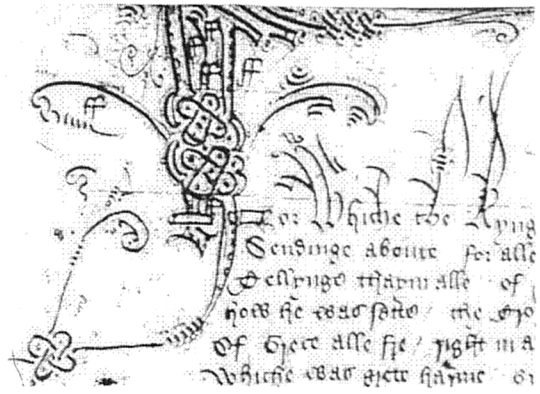 For Whiche the kyng
Sendinge aboute for alle
Tellynge tham alle of
how he was / the
Of Grece alle / right in a
Whiche was grete harme